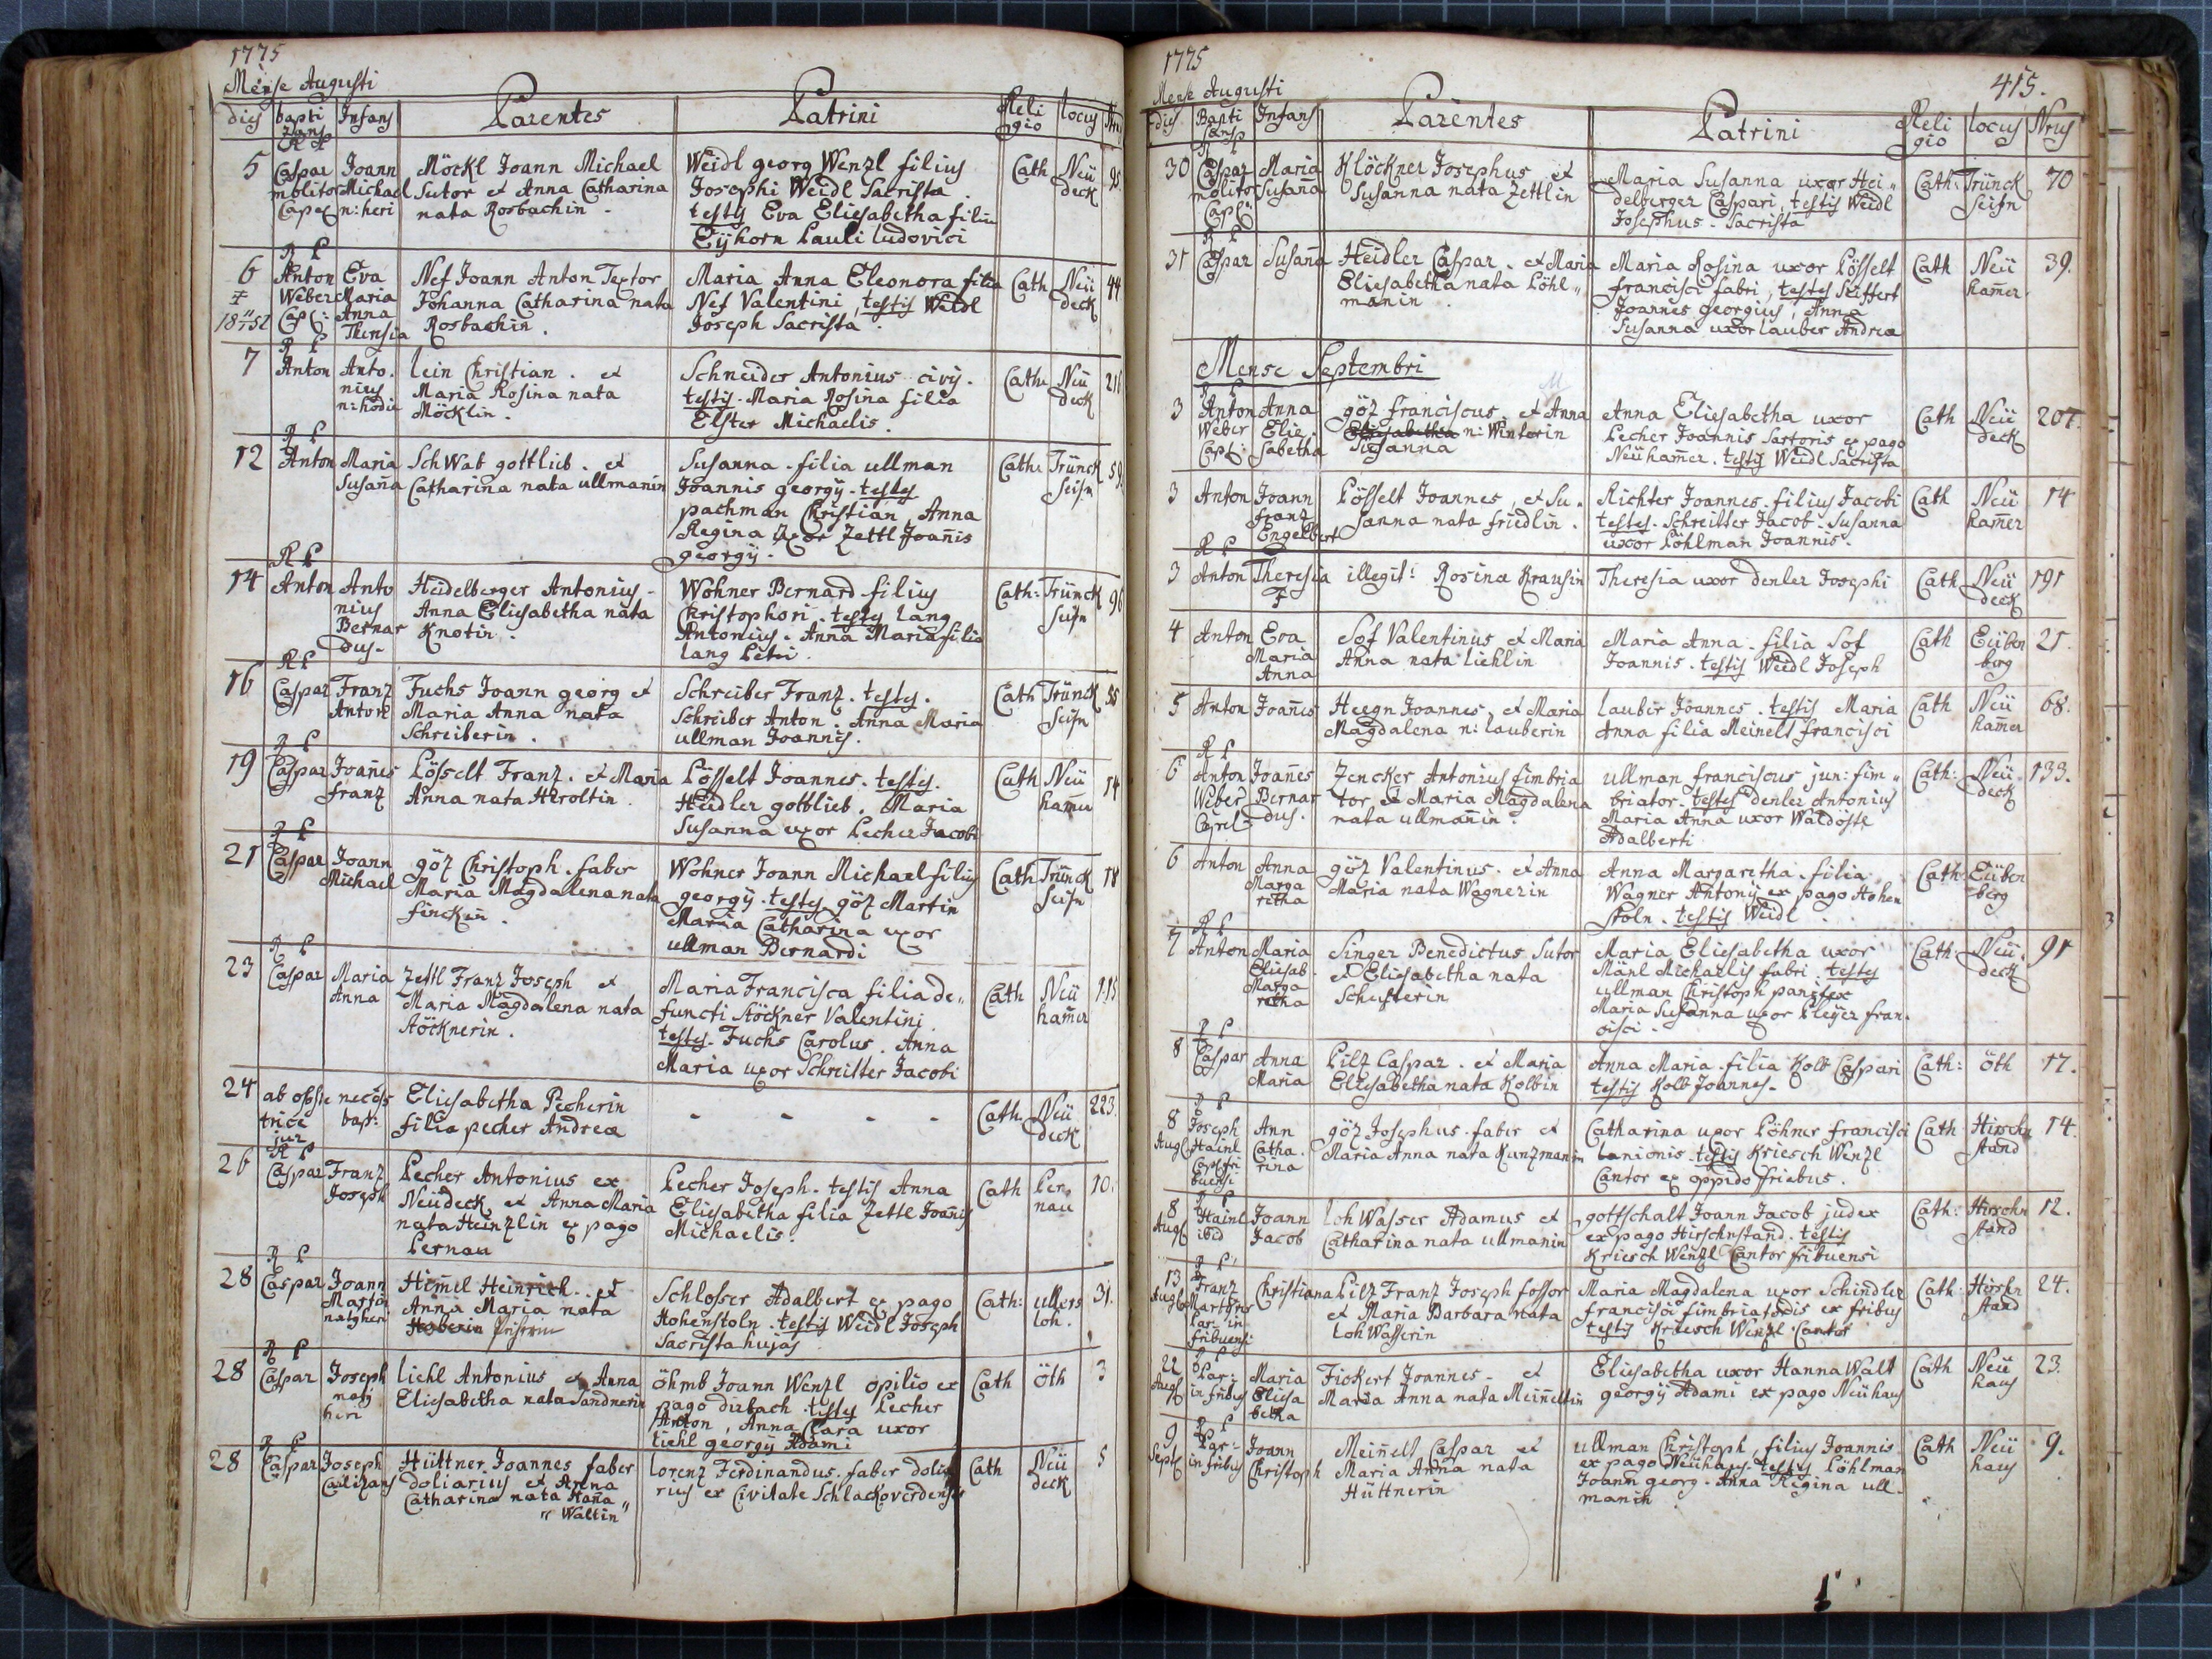 1775
Mense Augusti
dies baptizans Infans Parentes Patrini Religio locus Nrus
5 R P Caspar molitor Joann Michael n: heri
Möckl Joann Michael
Sutor et Anna Catharina
nata Rosbachin.
Weidl georg Wenzl filius
Josephi Weidl Sacrista.
testis Eva Eliesabetha filia
Eÿhorn Pauli ludovici
Cath Neüdeck
6 R P Anton Weber Eva Maria Anna Theresia
Nef Joann Anton Textor
Johanna Catharina nata
Rosbachin.
Maria Anna Eleonora filia
Nef Valentini, testis Weidl
Joseph Sacrista.
Cath Neüdeck 44
7 R P Anton Antonius n: hodie
lein Christian. et
Maria Rosina nata
Möcklin.
Schneider Antonius civis.
testis. Maria Rosina filia
Elster Michaelis.
Cath: Neüdeck
12 R P Anton Maria Susaña
SchWab gottlieb. et
Catharina nata ullmanin
Susanna. filia ullman
Joannis georgÿ. testes
pachman Christian Anna
Regina uxor Zettl Joañis
georgÿ.
Cath: Trünckseifn 59
14 R P Anton Antonius Bernardus.
Heidelberger Antonius.
Anna Eliesabetha nata
Knotin.
Wohner Bernard filius
Christophori. testes lang
Antonius. Anna Maria filia
lang Petri.
Cath: Trünckseifn 96
16 R P Caspar Franz Anton
Fuchs Joann georg et
Maria Anna nata
Schreiberin.
Schreiber Franz. testes.
Schreiber Anton. Anna Maria
ullman Joannis.
Cath Trünckseifn
19 R P Caspar Joañes franz
Pösselt Franz. et Maria
Anna nata Heroltin.
Pösselt Joannes. testes.
Heidler gottlieb. Maria
Susanna uxor Pecher Jacobi
Cath Neühamer 14
21 R P Caspar Joann Michael
göz Christoph. faber
Maria Magdalena nata
finckin.
Wohner Joann Michael filius
georgÿ. testes göz Martin
Maria Catharina uxor
ullman Bernardi
Cath Trünckseifn 18
23 R P Caspar Maria Anna
Zettl Franz Joseph et
Maria Magdalena nata
Stöcknerin.
Maria Francisca filia de„
functi Stöckner Valentini
testes. Fuchs Carolus. Anna
Maria uxor Schreitter Jacobi
Cath Neühamer 115
24 ab obstetrice
Eliesabetha Pecherin
filia pecher Andreæ
- - - -
Cath. Neüdeck 223.
26 R P Caspar Franz Joseph
Pecher Antonius ex
Neüdeck et Anna Maria
nata Heinzlin ex pago
Pernau
Pecher Joseph. testis Anna
Eliesabetha filia Zettl Joañis
Michaelis.
Cath Pernau 10.
28 R P Caspar Joann Martin
Himel Heinrich. et
Anna Maria nata
Schlosser Adalbert ex pago
Hohenstoln. testis Weidl Joseph
Sacrista hujas
Cath: ullersloh. 31.
28 R P Caspar Joseph heri
liehl Antonius et Anna
Eliesabetha nata Sandnerin
öhmb Joann Wenzl opilio ex
pago dirbach. testes Pecher
Anton, Anna Clara uxor
liehl georgÿ Adami
Cath Öth 3
28 R P Caspar Joseph
Hüttner Joannes faber
doliarius et Anna
Catharina nata Haña„
„Waltin
lorenz Ferdinandus. faber dolia
rius ex Civitate Schlackoverdensis
Cath Neüdeck 5
1775
Mense Augusti 415.
dies Baptizans Infans Parentes Patrini Religio locus Nrus
30 R P Caspar molitor Maria Susana
Klöckner Josephus et
Susanna nata Zettlin
Maria Susanna uxor Hei„
delberger Caspari, testis Weidl
Josephus. Sacrista
Cath: Trünckseifn 70
31 R P Caspar Susaña
Heidler Caspar. et Maria
Eliesabetha nata Pöhl„
manin.
Maria Rosina uxor Pösselt
francisci fabri, testes Seiffert
Joannes georgius, Anna
Susanna uxor lauber Andreæ
Cath Neühamer 39.
Mense Septembri
3 R P Anton Weber Anna Eliesabetha
göz franciscus. et Anna
Eliesabetha n: Winterin
Susanna
Anna Eliesabetha uxor
Pecher Joannis Sartoris ex pago
Neühamer. testis Weidl Sacrista
Cath Neüdeck 204.
3 Anton Joann franz Engelbert
Pösselt Joannes, et Su.
sanna nata friedlin.
Richter Joannes. filius Jacobi
testes. Schreitter Jacob. Susanna
uxor Pöhlman Joannis.
Cath Neühamer 14
3 R P Anton Theresia
illegit: Rosinæ Krausin
Theresia uxor denler Josephi
Cath Neüdeck 191
4 Anton Eva Maria Anna
Sof Valentinus et Maria
Anna nata liehlin
Maria Anna. filia Sof
Joannis. testis Weidl Joseph
Cath Eübenberg 21.
5 Anton Joañes
Heegn Joannes, et Maria
Magdalena n: lauberin
lauber Joannes. testis Maria
Anna filia Meinelt francisci
Cath Neühamer 68.
6 R P Anton Weber Joañes Bernardus.
Zencker Antonius fimbria
tor, et Maria Magdalena
nata ullmañin.
ullman franciscus jun: fim„
briator. testes denler Antonius
Maria Anna uxor Waldöstl
Adalberti
Cath: Neüdeck 133.
6 Anton Anna Margaretha
göz Valentinus. et Anna
Maria nata Wagnerin
Anna Margaretha. filia
Wagner Antonÿ ex pago Hohen
stoln. testis Weidl.
Cath: Eübenberg
7 R P Anton Maria Eliesab. Margaretha
Singer Benedictus Sutor
et Eliesabetha nata
Schusterin
Maria Eliesabetha uxor
Mänl Michaelis fabri. testes
ullman Christoph panifex
Maria Susanna uxor Pleÿer fran.
cisci.
Cath: Neüdeck 91
8 R P Caspar Anna Maria
Pilz Caspar. et Maria
Eliesabetha nata Kolbin
Anna Maria. filia Kolb Caspari
testis Kolb Joannes.
Cath: öth 17.
8 Aug R P Joseph Hainl Ann Catharina
göz Josephus. faber et
Maria Anna nata Kunzmanin
Catharina uxor Pöhner francisci
lanionis. testis Kriesch Wenzl
Cantor ex oppido friebus.
Cath Hirschnstand 14.
8 Aug R P Hainl ibid Joann Jacob
loh Wasser Adamus et
Catharina nata ullmanin
gottschalt Joann Jacob judex
ex pago Hirschnstand. testis
Kriesch Wenzl Cantor fribuensi
Cath: Hirschnstand 12.
13 Aug R P Franz Christiana
Pilz Franz Joseph fossor
et Maria Barbara nata
loh Wasserin
Maria Magdalena uxor Schindler
francisci fimbriatoris ex fribus
testis Kriesch Wenzl Cantor
Cath. Hirschnstand 24.
22 Aug R P Maria Eliesabetha
Fickert Joannes. et
Maria Anna nata Meiñeltin
Eliesabetha uxor HannaWalt
georgÿ Adami ex pago Neühaus
Cath Neühaus 23.
9 Sept R P Joann Christoph
Meiñelt Caspar et
Maria Anna nata
Hüttnerin
ullman Christoph, filius Joannis
ex pago Neühaus. testes Pöhlman
Joann georg. Anna Regina ull.
manin
Cath Neühaus 9.